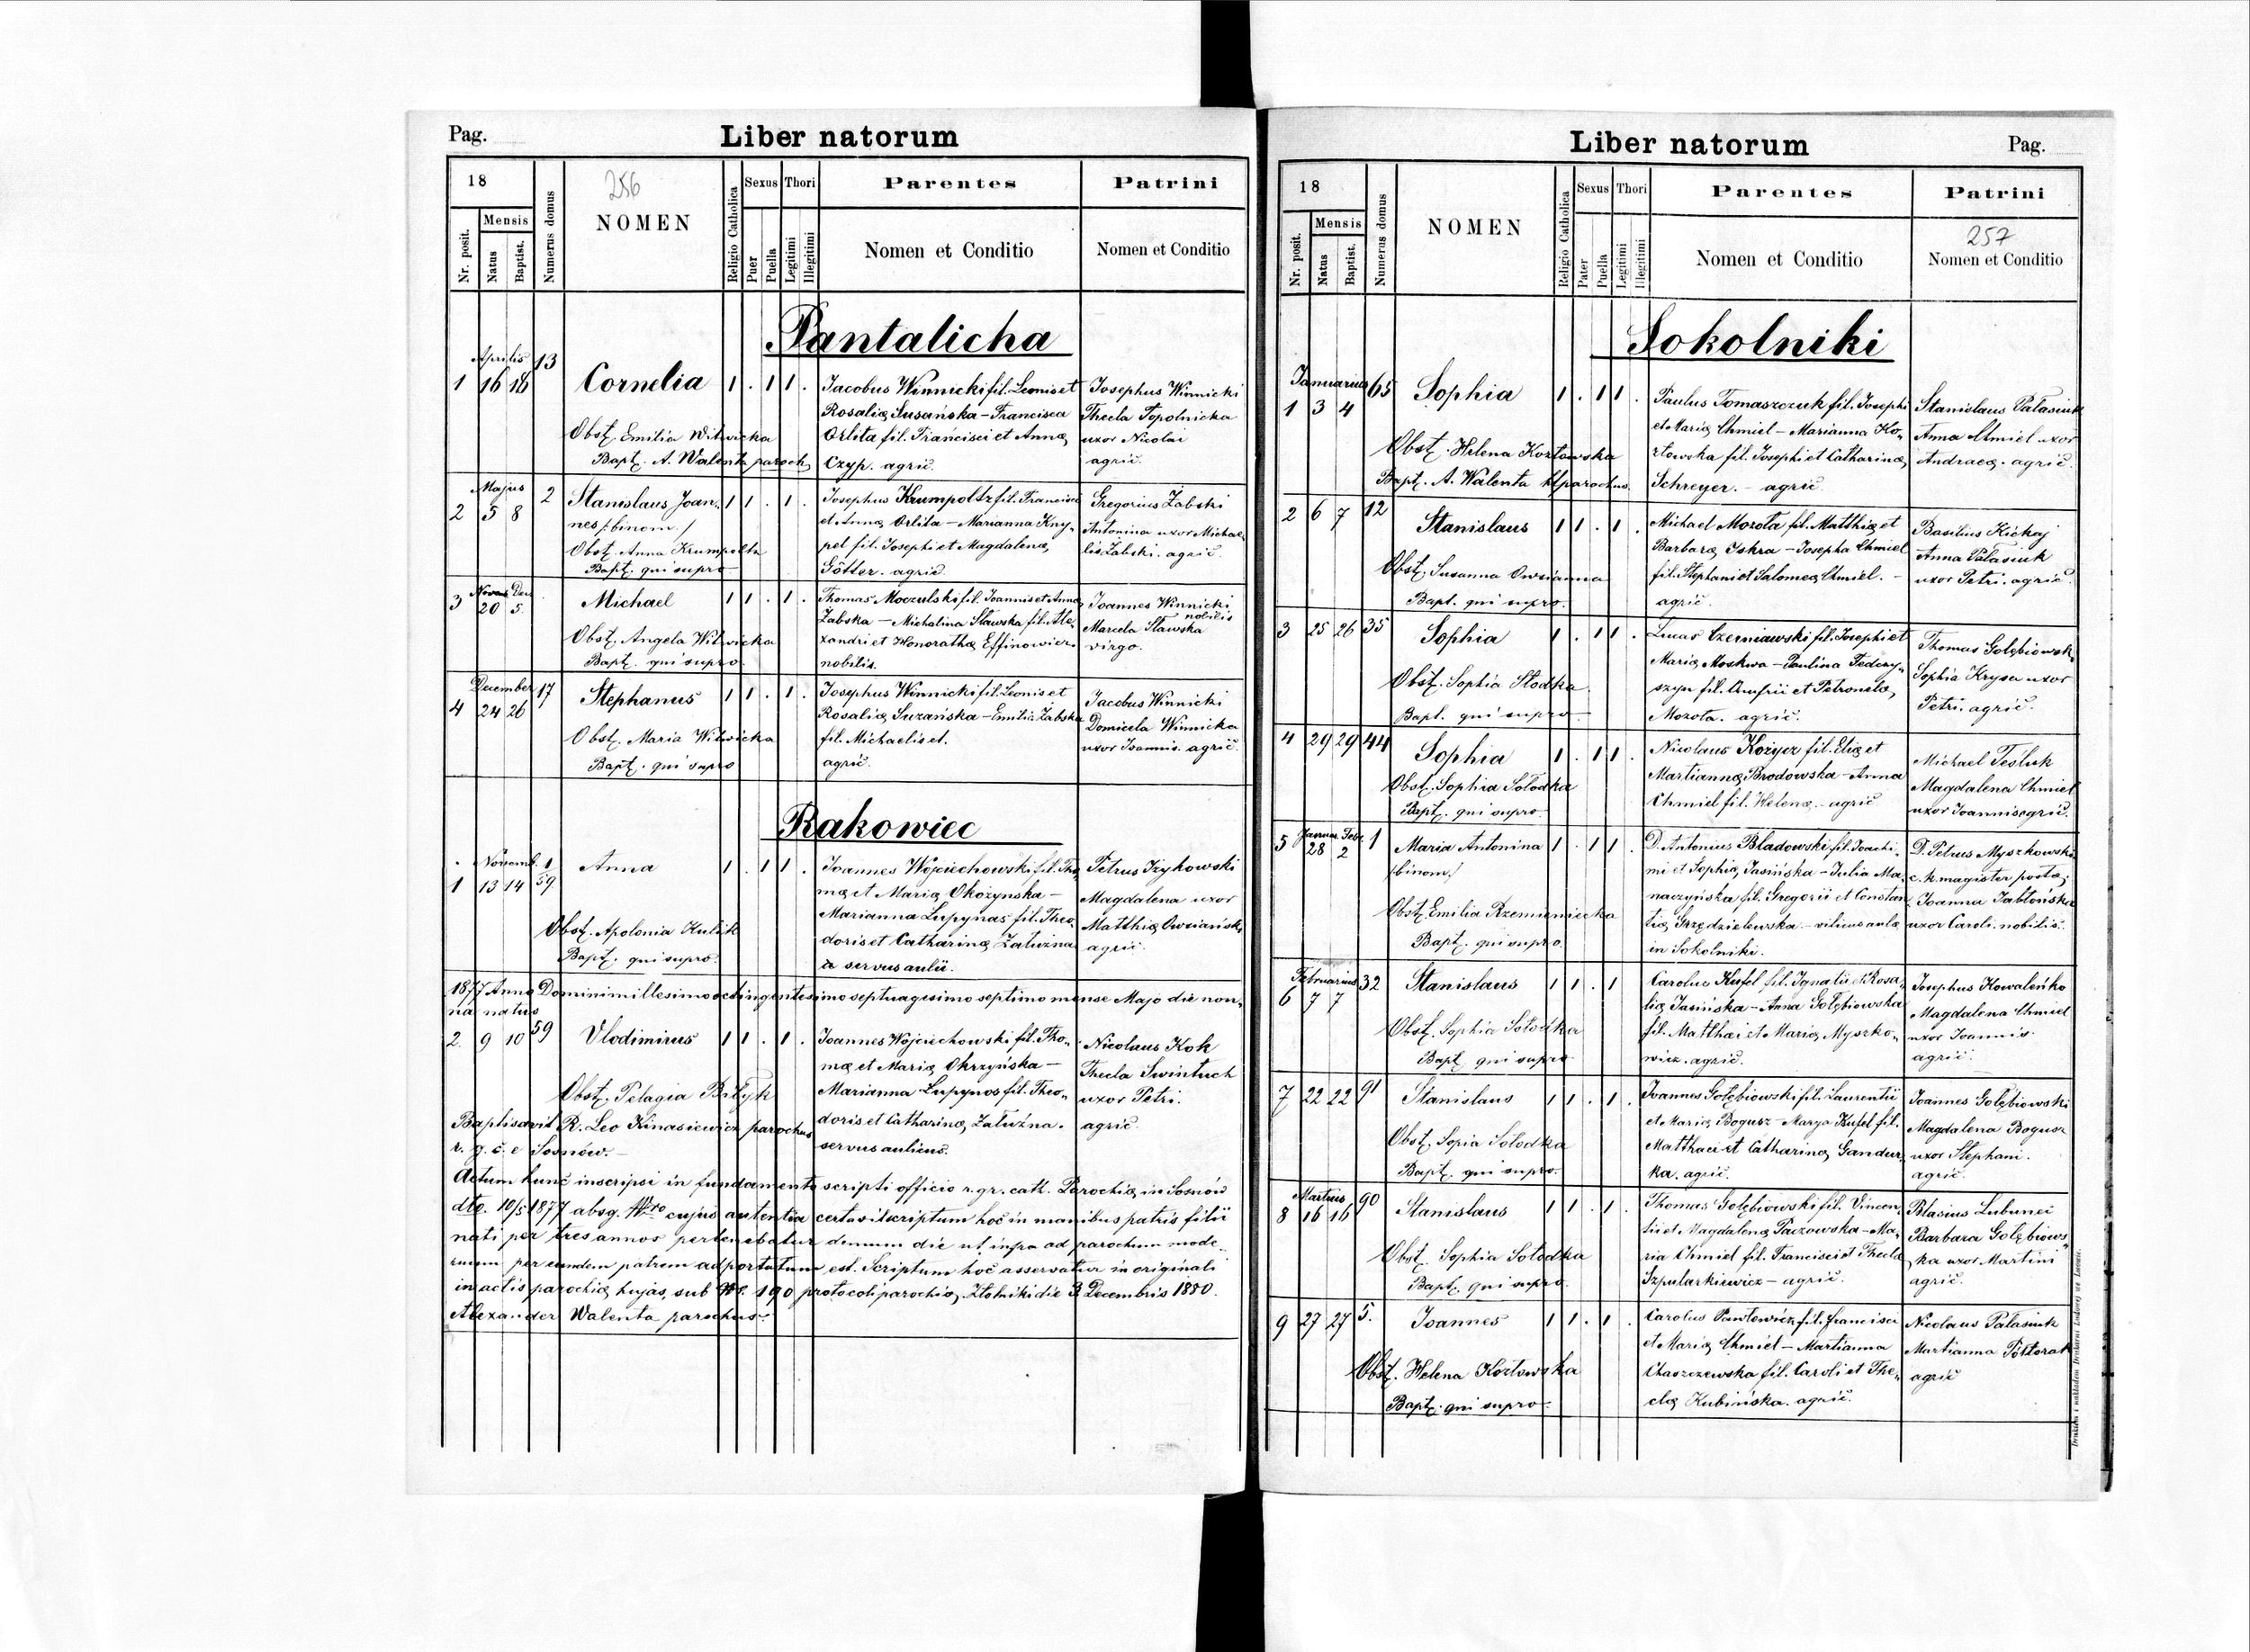 Pag.
Liber natorum
18
256
NOMEN
Nr. posit.
Mensis
Natus
Baptist.
Numerus domus
Religio Catholica
Sexus
Puer
Puella
Thori
Legitimi
Illegitimi
Parentes
Nomen et Conditio
Patrini
Nomen et Conditio
Pantalicha
Aprilis 13
1 16 18 Cornelia 1 . 1 1 . Jacobus Winnicki fil. Leonis et Josephus Winnicki
Rosaliæ Susańska – Francisca Thecla Topolnicka
Obst. Emilia Witwicka Orlita fil. Francisci et Annæ uxor Nicolai
Bapt. A. Walenta paroch. Czyp. agric. agric.
Majus 2 Stanislaus Joan- 1 1 . 1 . Josephus Krumpoltz fil. Francisci Gregorius Żabski
2 5 8 nes /:binom:/ et Annæ Orlita – Marianna Kny- Antonina uxor Michae-
Obst. Anna Krumpoltz pel fil. Josephi et Magdalenæ lis Żabski. agric.
Bapt. qui supra Götter. agric.
Novem Dec
3 20 5. Michael 1 1 . 1 . Thomas Moczulski fil. Joannis et Annæ Joannes Winnicki
Żabska – Michalina Sławska fil. Ale- nobilis
Obst. Angela Witwicka xandri et Honorathæ Effinowicz. Marcela Sławska
Bapt. qui supra nobilis. virgo.
December 17
4 24 26 Stephanus 1 1 . 1 . Josephus Winnicki fil. Leonis et Jacobus Winnicki
Rosaliæ Suzańska – Emilia Żabska Domicela Winnicka
Obst. Maria Witwicka fil. Michaelis et. uxor Joannis. agric.
Bapt. qui supra agric.
Rakowiec
Novemb. 1
1 13 14 59 Anna 1 . 1 1 . Joannes Wojciechowski fil. Tho- Petrus Izykowski
mæ et Mariæ Okożynska – Magdalena uxor
Marianna Lupynas fil. Theo- Matthiæ Owsiański
Obst. Apolonia Kulik doris et Catharinæ Załużna agric.
Bapt. qui supra. servus aulii.
1877 Anno Domini millesimo octingentesimo septuagesimo septimo mense Majo die non-
na natus
2. 9 10 59 Vlodimirus 1 1 . 1 . Joannes Wojciechowski fil. Tho- Nicolaus Kok
mæ et Mariæ Okrzyńska – Thecla Swintuch
Obst. Pelagia Bilyk Marianna Lupynos fil. Theo- uxor Petri.
Baptisavit R. Leo Kinasiewicz parochus doris et Catharinæ Załużna. agric.
r. g. c. e Sosnów. servus aulicus.
Actum hunc inscripsi in fundamento scripti officio r. gr. cath. Parochiæ in Sosnów
dto. 10/5 1877 absq. Nro cujus autentia certavit scriptum hoc in manibus patris filii
nati per tres annos pertenebatur demum die ut infra ad parochum mode-
rnum per eundem patrem adportatum est. Scriptum hoc asservatur in originali
in actis parochiæ hujas, sub Nr. 190 protocoli parochiæ, Złotniki die 3 Decembris 1880.
Alexander Walenta parochus.
Liber natorum
Pag.
18
Nr. posit.
Mensis
Natus
Baptist.
Numerus domus
NOMEN
Religio Catholica
Sexus
Pater
Puella
Thori
Legitimi
Illegitimi
Parentes
Nomen et Conditio
Patrini
257
Nomen et Conditio
Sokolniki
Januarius 65
1 3 4 Sophia 1 . 1 1 . Paulus Tomaszczuk fil. Josephi Stanislaus Palasiuk
et Mariæ Chmiel – Marianna Ko- Anna Chmiel uxor
Obst. Helena Kozłowska złowska fil. Josephi et Catharinæ Andraeæ. agric.
Bapt. A. Walenta parochus. Schreyer. – agric.
2 6 7 12 Stanislaus 1 1 . 1 Michael Mozota fil. Matthiæ et Basilius Kickaj
Barbaræ Iskra – Josepha Chmiel Anna Palasiuk
Obst. Susanna Owsianna fil. Stephani et Salomeæ Chmiel. – uxor Petri. agric.
Bapt. qui supra. agric.
3 25 26 35 Sophia 1 . 1 1 . Lucas Czerniawski fil. Josephi et Thomas Gołębiowski
Mariæ Moskwa – Paulina Fedczy- Sophia Krysa uxor
Obst. Sophia Słodka szyn fil. Onufrii et Petronelæ Petri. agric.
Bapt. qui supra Mozota. agric.
4 29 29 44 Sophia 1 . 1 1 Nicolaus Kożycz fil. Eliæ et Michael Teśluk
Obst. Sophia Sołodka Martiannæ Brodowska – Anna Magdalena Chmiel
Bapt. qui supra Chmiel fil. Helenæ – agric uxor Joannis agric.
Januar. Febr.
5 28 2 1 Maria Antonina 1 . 1 1 . D. Antonius Bladowski fil. Joachi- D. Petrus Myszkowski
/binom/ mi et Sophiæ Jasińska – Julia Ma- c. k. magister postæ;
Obst. Emilia Rzemieniecka naczyńska fil. Gregorii et Constan- Joanna Jabłońska
Bapt. qui supra tiæ Grzędzielewska – vilicus aulæ uxor Caroli. nobilis.
in Sokolniki.
Februarius 32
6 7 7 Stanislaus 1 1 . 1 Carolus Kufel fil. Ignatii et Rosa- Josephus Kowaleńko
liæ Jasińska – Anna Gołębiowska Magdalena Chmiel
Obst. Sophia Sołodka fil. Matthæi et Mariæ Myszko- uxor Joannis.
Bapt qui supra wicz. agric. agric.
7 22 22 91 Stanislaus 1 1 . 1 . Joannes Gołębiowski fil. Laurentii Joannes Gołębiowski
et Mariæ Bogusz – Marya Kufel fil. Magdalena Bogusz
Obst. Sopia Sołodka Matthaei et Catharinæ Gandur- uxor Stephani.
Bapt. qui supra. ka. agric. agric.
Martius 90
8 16 16 Stanislaus 1 1 . 1 . Thomas Gołębiowski fil. Vincen- Blasius Lubunei
tii et Magdalenæ Paczowska – Ma- Barbara Gołębiows-
Obst. Sophia Sołodka ria Chmiel fil. Francisci et Theclæ ka uxor Martini
Bapt. qui supra. Szpularkiewicz – agric. agric.
9 27 27 5. Joannes 1 1 . 1 . Carolus Pawłowicz fil. Francisci Nicolaus Palasiuk
et Mariæ Chmiel – Martianna Martianna Półtorak
Obst. Helena Kozłowska Chaszczewska fil. Caroli et The- agric
Bapt. qui supra clæ Kubińska. agric.